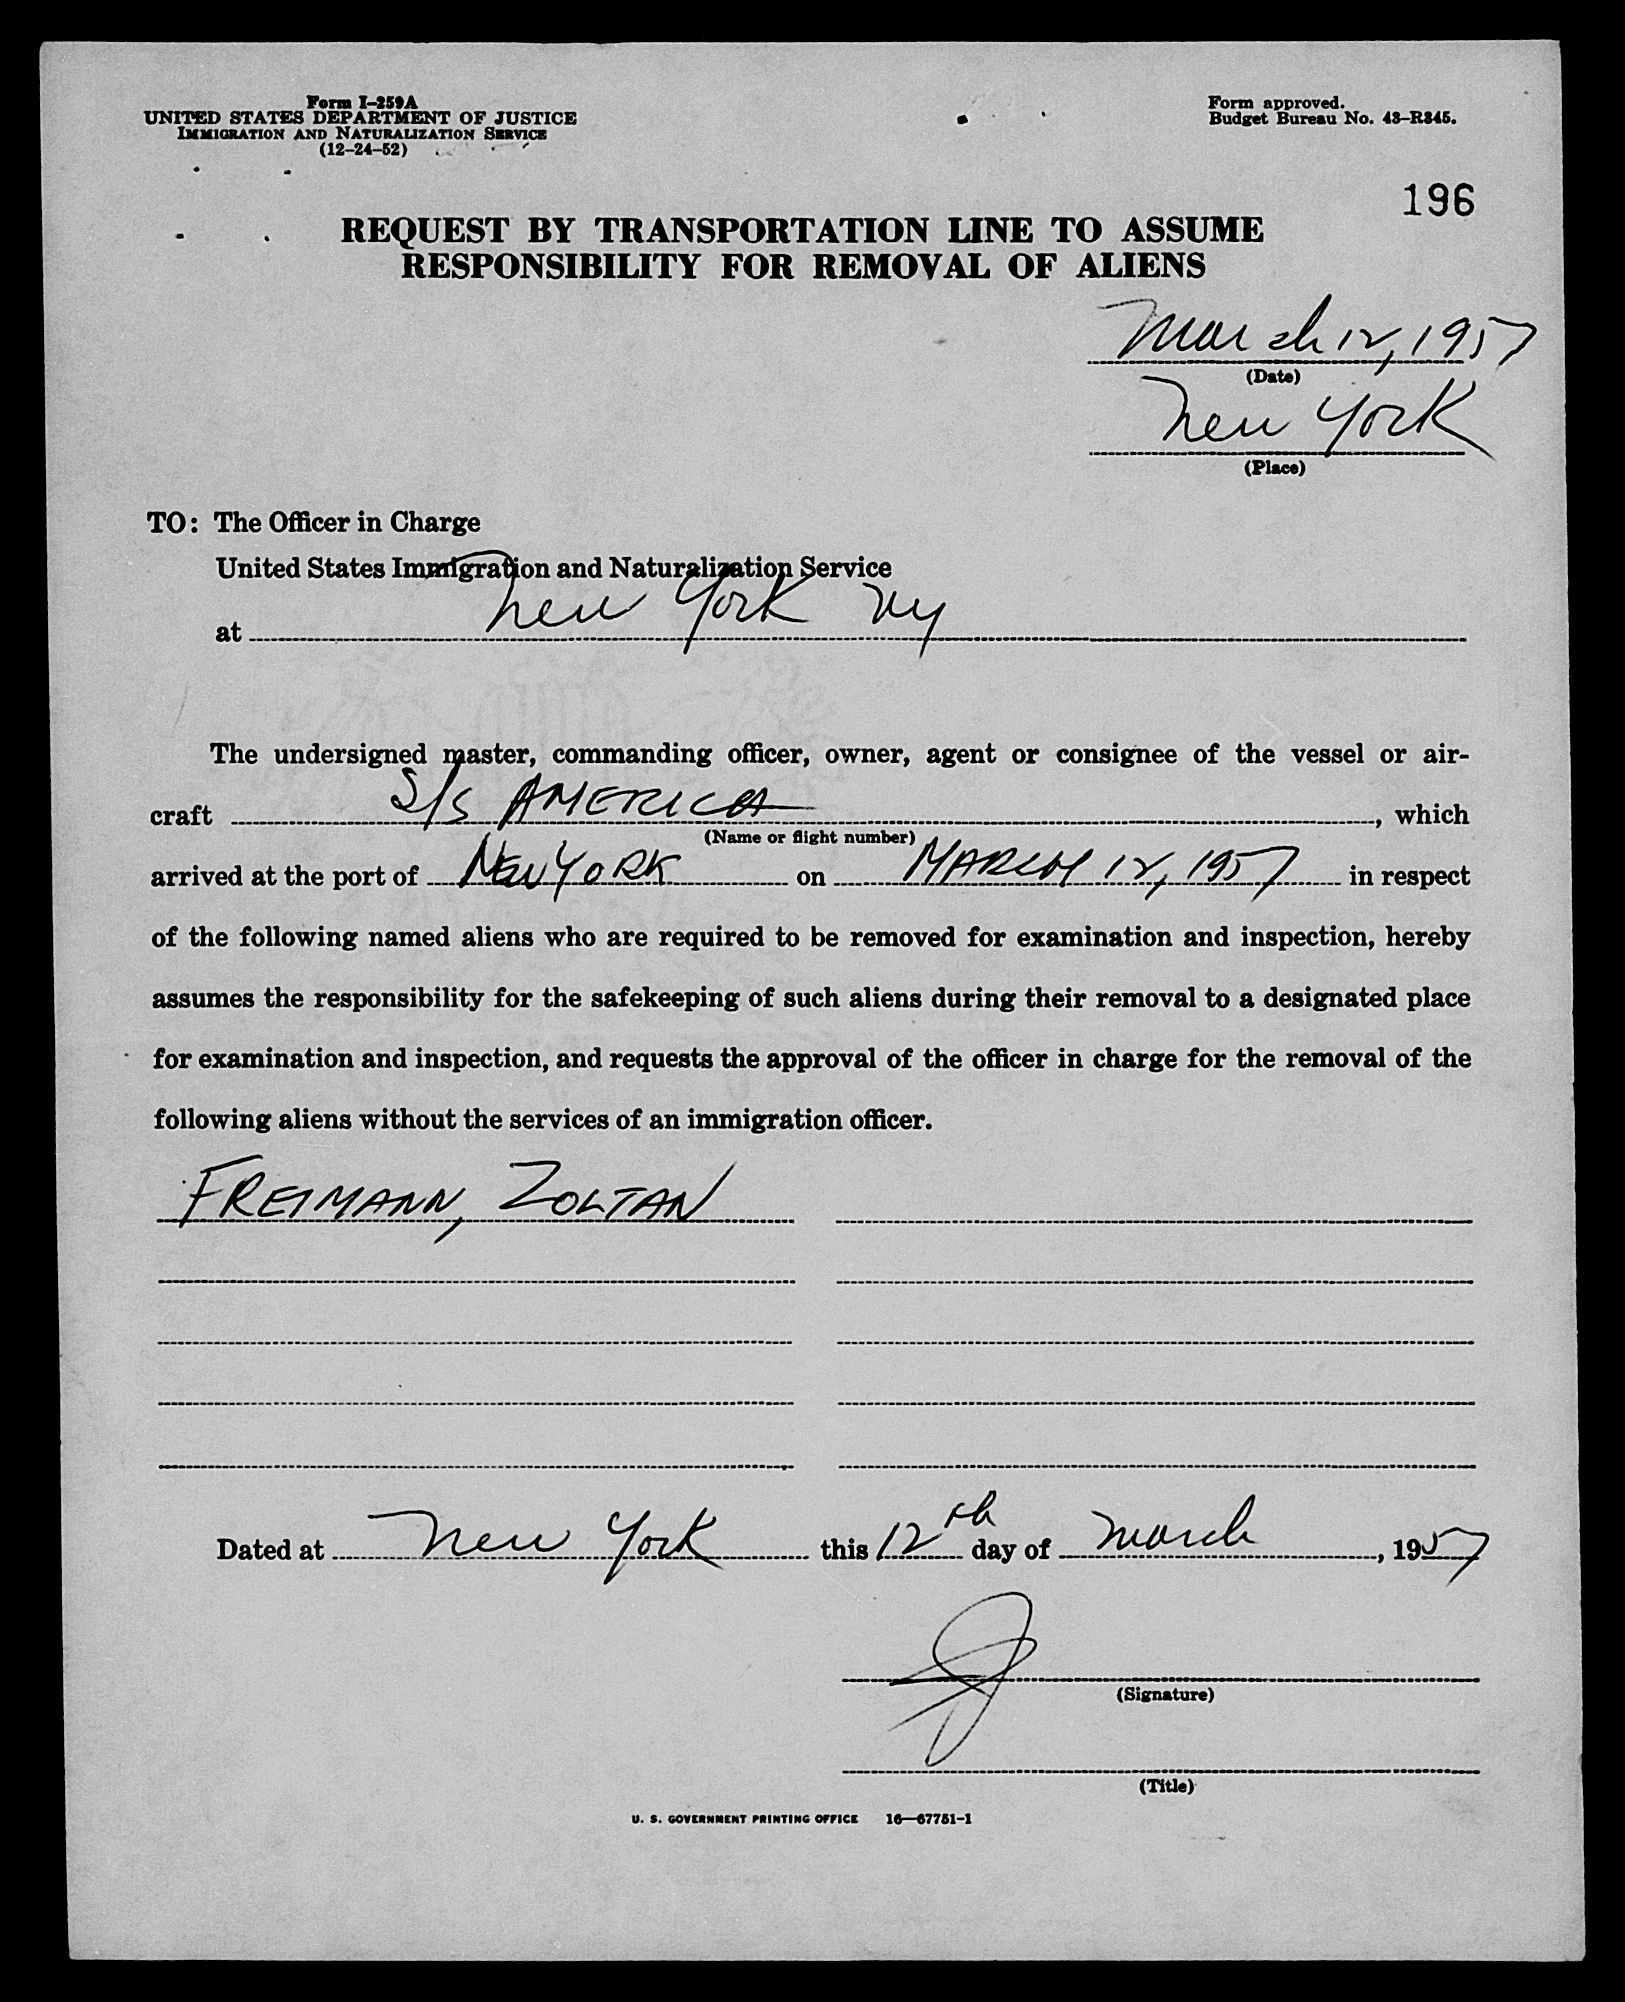 Form I-259A
UNITED STATES DEPARTMENT OF JUSTICE
IMMIGRATION AND NATURALIZATION SERVICE
(12-24-52)
Form approved.
Budget Bureau No. 43-R345.
196
REQUEST BY TRANSPORTATION LINE TO ASSUME
RESPONSIBILITY FOR REMOVAL OF ALIENS
March 12, 1957
(Date)
New York
(Place)
TO: The Officer in Charge
United States Immigration and Naturalization Service
at New York NY
The undersigned master, commanding officer, owner, agent or consignee of the vessel or air-
craft S/S AMERICA, which
(Name or flight number)
arrived at the port of NEW YORK on MARCH 12, 1957 in respect
of the following named aliens who are required to be removed for examination and inspection, hereby
assumes the responsibility for the safekeeping of such aliens during their removal to a designated place
for examination and inspection, and requests the approval of the officer in charge for the removal of the
following aliens without the services of an immigration officer.
FREIMANN, ZOLTAN
Dated at New York this 12th day of March, 1957
(Signature)
(Title)
U. S. GOVERNMENT PRINTING OFFICE 16—67751-1